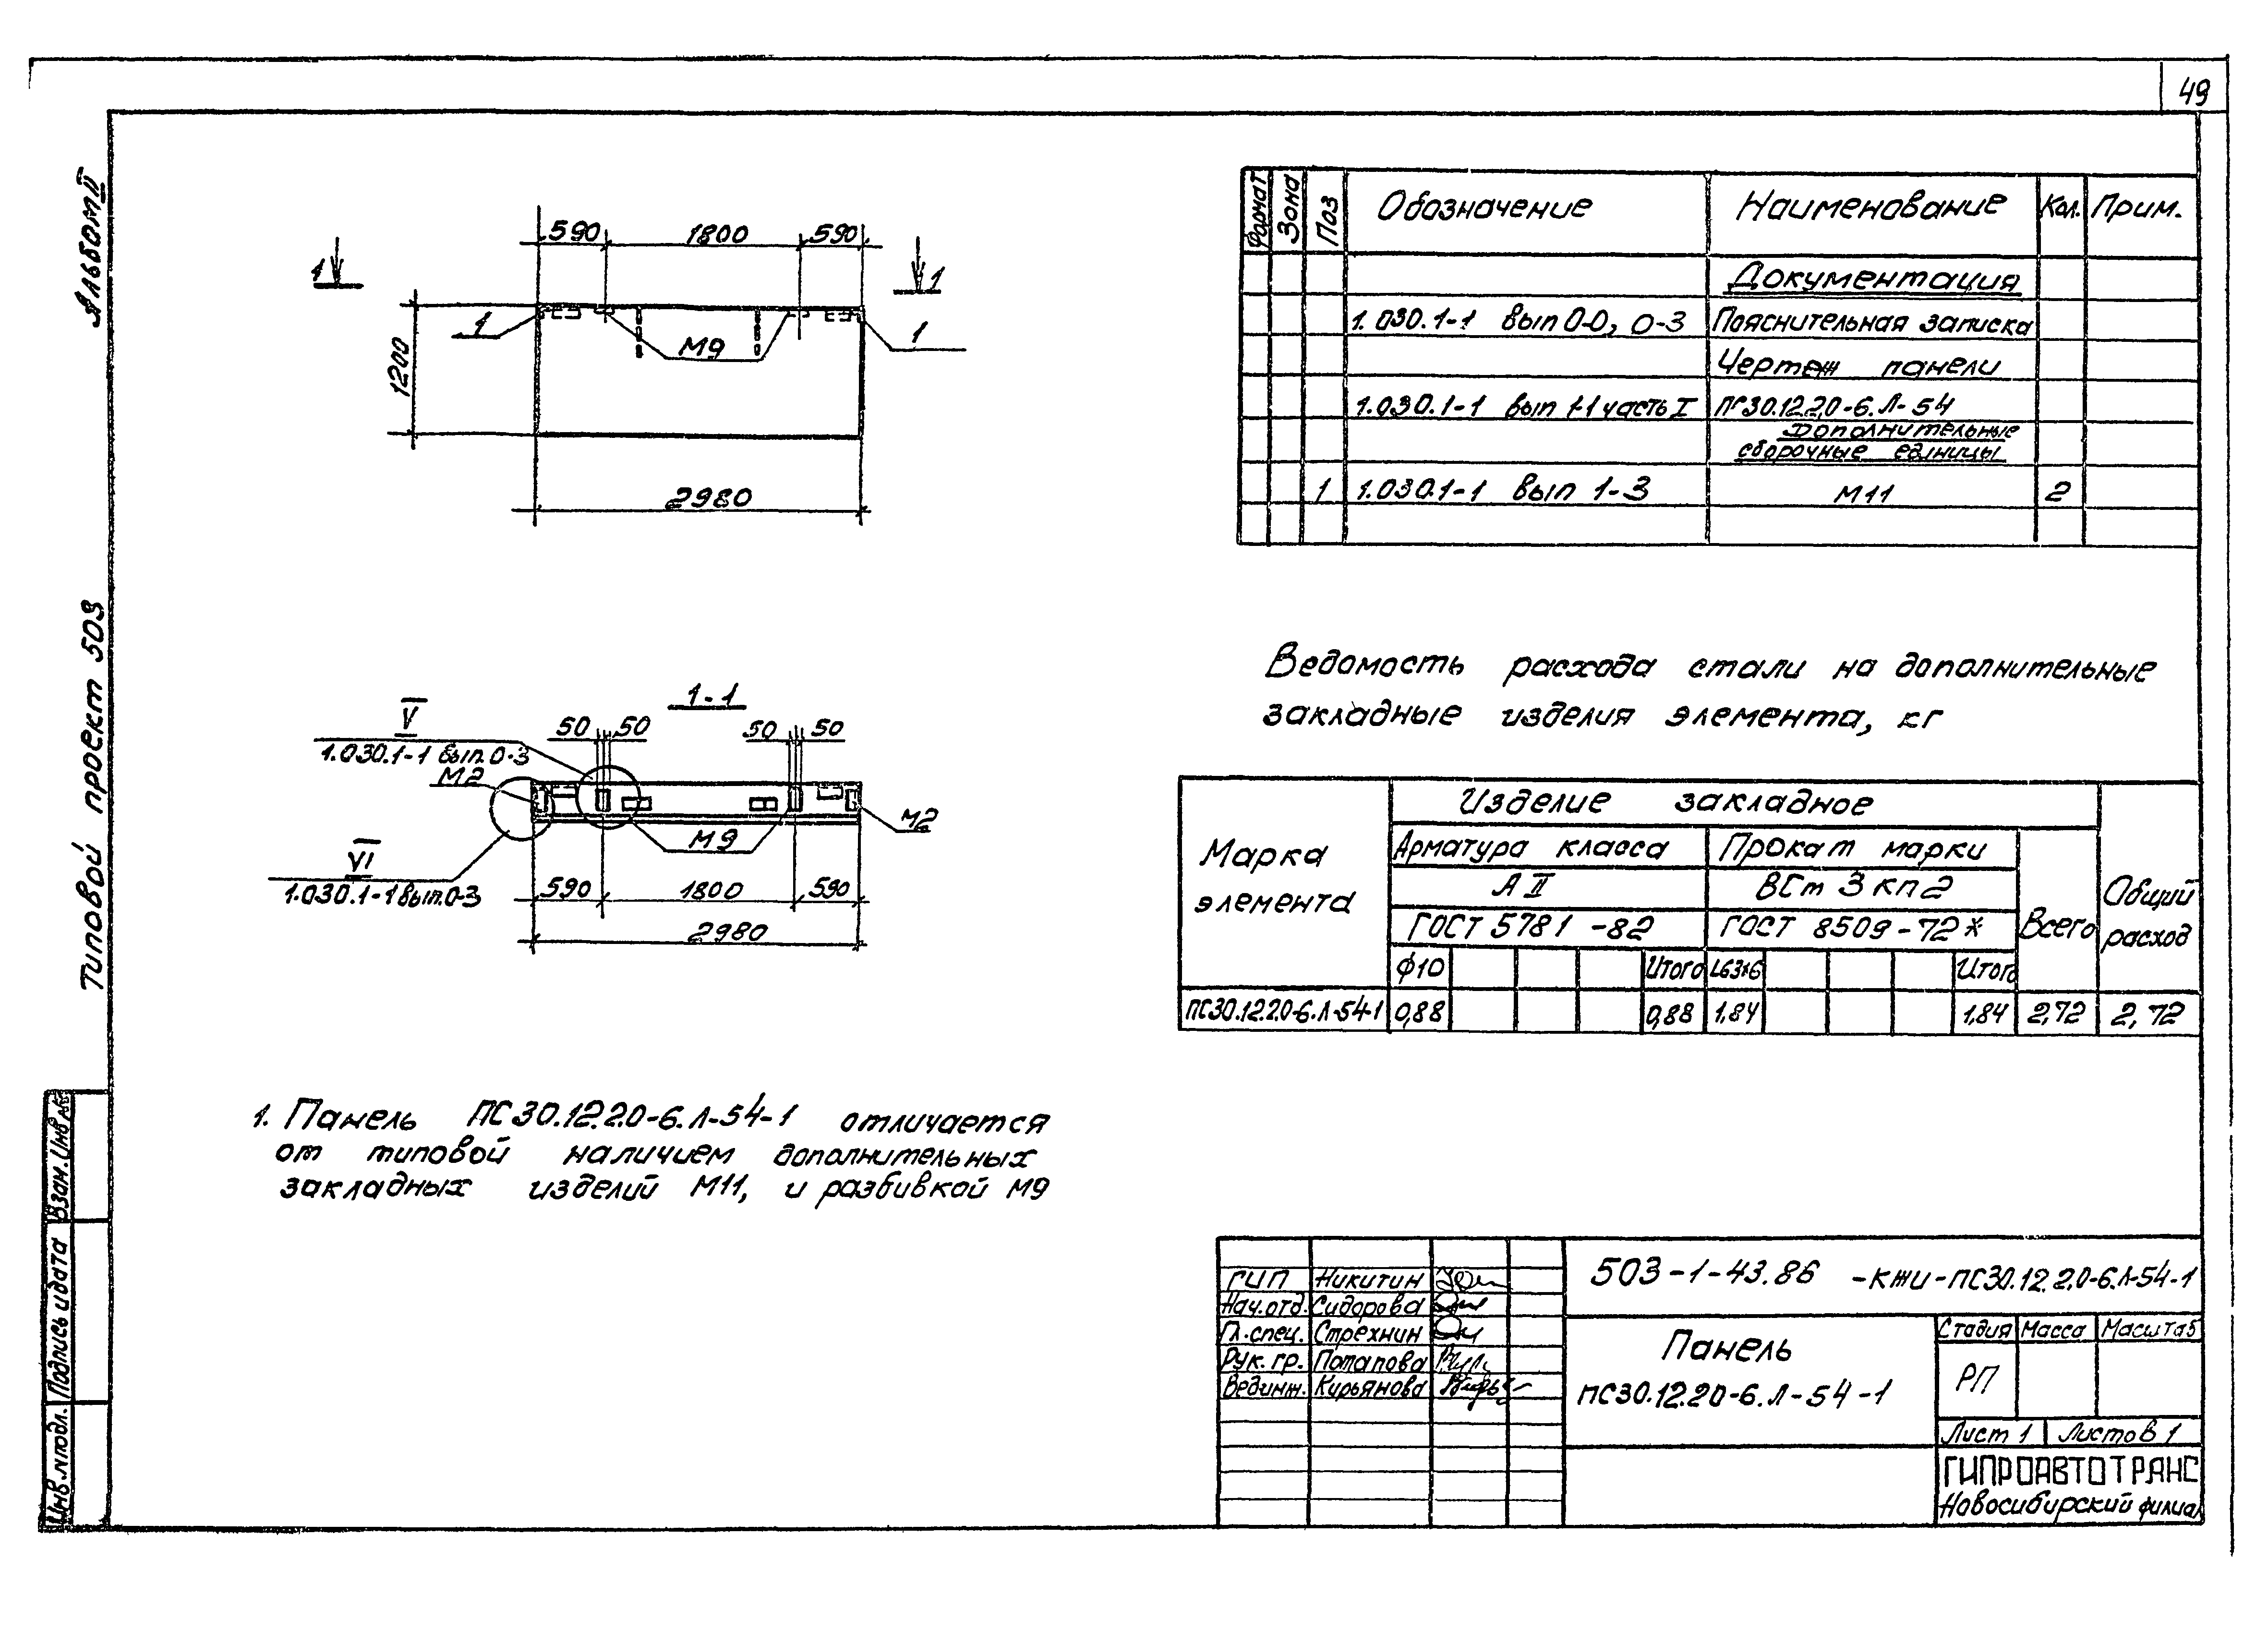 49
Альбом II
Типовой проект 503
590 1800 590
1 1
1 М9 1
1200
2980
1-1
V
50 50 50 50
1.030.1-1 вып. 0-3
М2
М2
М9
VI
1.030.1-1 вып. 0-3
590 1800 590
2980
1. Панель ПС30.12.2.0-6.Л-54-1 отличается
от типовой наличием дополнительных
закладных изделий М11, и разбивкой М9
Формат Зона Поз Обозначение Наименование Кол. Прим.
Документация
1.030.1-1 вып 0-0, 0-3 Пояснительная записка
Чертеж панели
1.030.1-1 вып 1-1 часть I ПС30.12.2.0-6.Л-54
Дополнительные
сборочные единицы
1 1.030.1-1 вып 1-3 М11 2
Ведомость расхода стали на дополнительные
закладные изделия элемента, кг
Марка элемента Изделие закладное Общий расход
Арматура класса Прокат марки Всего
А II ВСт 3 кп 2
ГОСТ 5781-82 ГОСТ 8509-72*
ф10 Итого L63×6 Итого
ПС30.12.2.0-6.Л-54-1 0,88 0,88 1,84 1,84 2,72 2,72
503-1-43.86 -КЖИ-ПС30.12.2.0-6.Л-54-1
ГИП Никитин
Нач.отд. Сидорова
Гл.спец. Стрехнин
Рук. гр. Потапова
Вед.инж. Кирьянова
Панель
ПС30.12.2.0-6.Л-54-1
Стадия Масса Масштаб
РП
Лист 1 Листов 1
ГИПРОАВТОТРАНС
Новосибирский филиал
Инв.№подл. Подпись и дата Взам.Инв.№